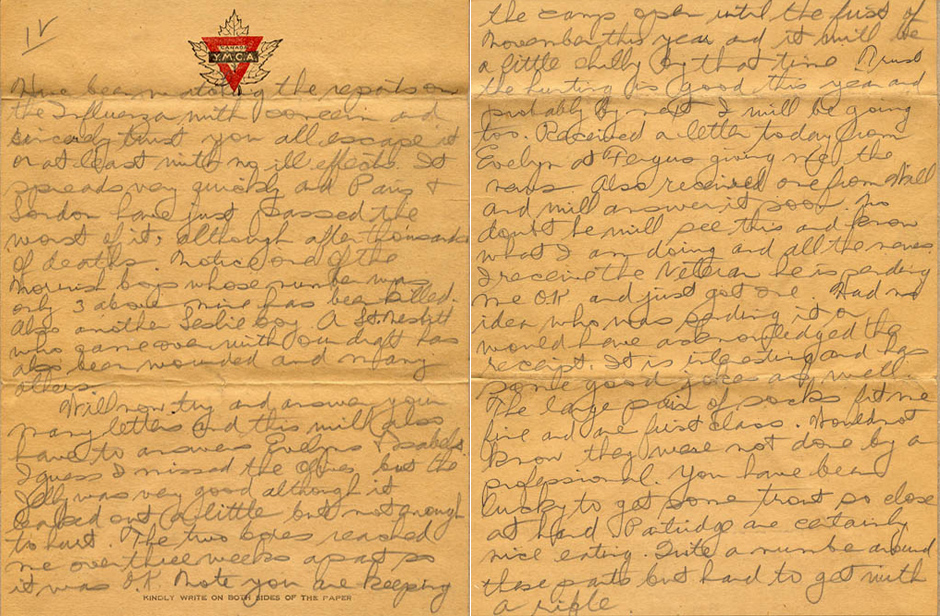 IV
CANADA
Y.M.C.A.
Have been noticing the reports on
the Influenza with concern and
sincerely trust you all escape it
or at least with no ill effects. It
spreads very quickly and Paris &
London have just passed the
worst of it, although after thousands
of deaths. Notice one of the
Morrish boys whose number was
only 3 above mine has been killed.
Also another Leslie boy. A St. Nesbitt
who came over with our draft has
also been wounded and many
others
Will now try and answer your
many letters and this will also
have to answer Evelyns & Isabels.
I guess I missed the but the
Jelly was very good although it
leaked out a little but not enough
to hurt. The two boxes reached
me over three weeks apart so
it was O.K. Note you are keeping
KINDLY WRITE ON BOTH SIDES OF THE PAPER
the camp open until the first of
November this year and it will be
a little chilly by that time. Trust
the hunting is good this year and
probably by next I will be going
too. Received a letter today from
Evelyn at Fergus giving me the
news. Also received one from Will
and will answer it soon. No
doubt he will see this and know
what I am doing and all the news.
I receive the Veteran he is sending
me OK and just got one. Had no
idea who was sending it or
would have acknowledged the
receipt. It is interesting and has
some good jokes as well.
The large pair of socks fit me
fine and are first class. Would not
know they were not done by a
professional. You have been
lucky to get some trout so close
at hand. Patridge are certainly
nice eating. Quite a number around
these parts but hard to get with
a rifle.